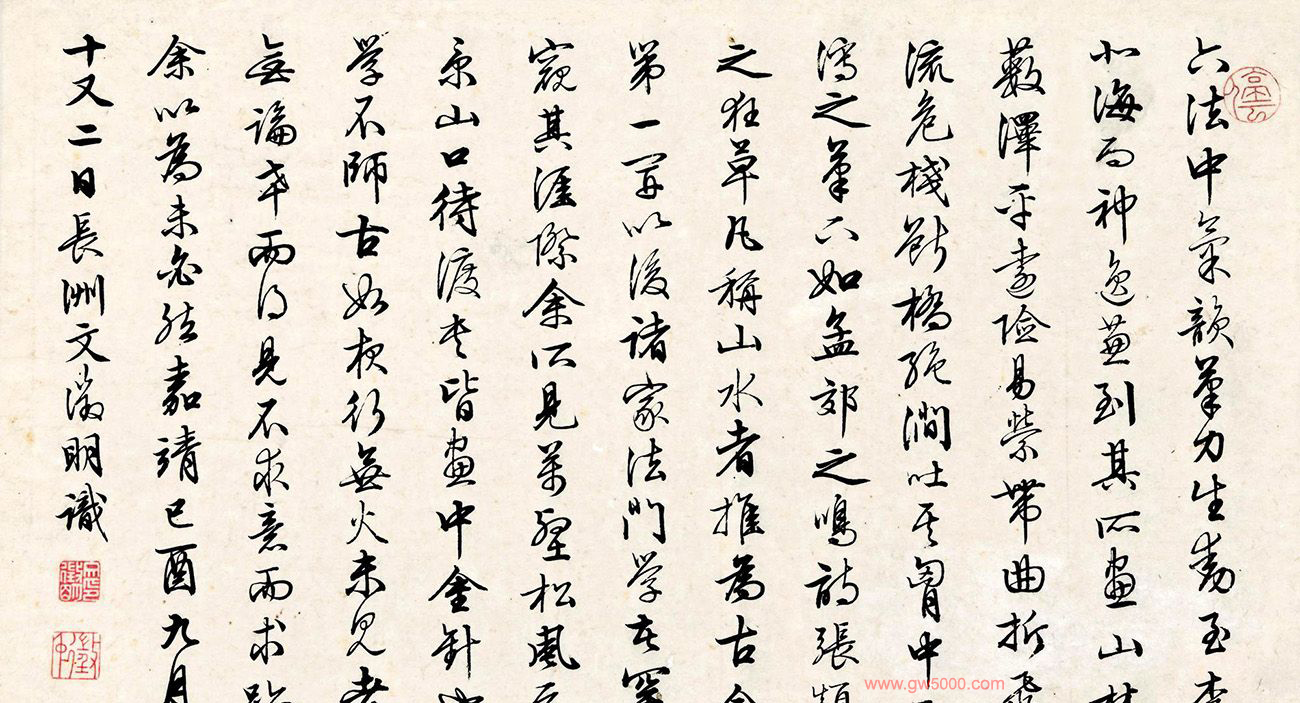 六法中氣韻筆力生動至李
北海而神逸兼到其所畫山林
藪澤平遠險易縈帶曲折飛
流危棧斷橋絕澗吐其胷中
瀉之筆下如孟郊之鳴詩張顛
之狂草凡稱山水者推為古今
第一至以後諸家法門學在窺
窺其涯際余所見萬壑松風
山口待渡卷皆畫中金針
學不師古如夜行無火未見者
無論幸而得見不求意而求跡
余以為未必然嘉靖己酉九月
十又二日長洲文徵明識
www.gw5000.com